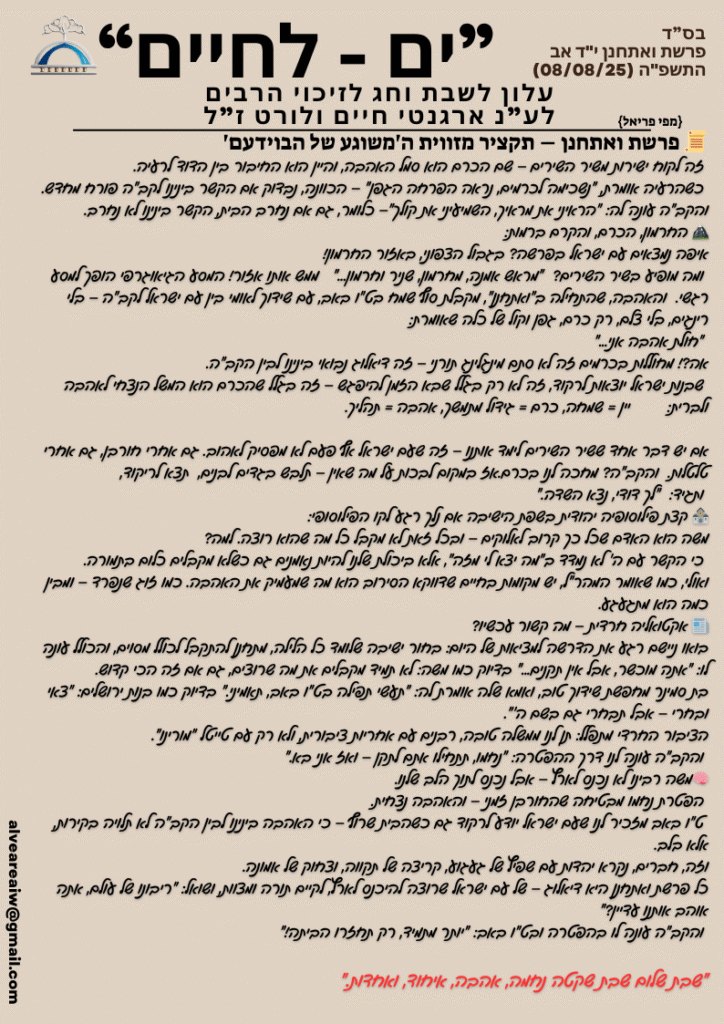 בס"ד
פרשת ואתחנן י"ד אב
התשפ"ה (08/08/25)
"ים - לחיים"
עלון לשבת וחג לזיכוי הרבים
לע"נ ארגנטי חיים ולורט ז"ל
{מפי פריאל}
פרשת ואתחנן – תקציר מזווית ה'משוגע של הבוידעם'
זה לקוח ישירות משיר השירים – שם הכרם הוא סמל האהבה, והיין הוא החיבור בין הדוד לרעיה.
כשהרעיה אומרת, "נשכימה לכרמים, נראה הפרחה הגפן" – הכוונה, נבדוק אם הקשר ביננו לקב"ה פורח מחדש.
והקב"ה עונה לה: "הראיני את מראיך, השמיעיני את קולך"– כלומר, גם אם נחרב הבית, הקשר ביננו לא נחרב.
החרמון, הכרם, והקרם ברמות:
איפה נמצאים עם ישראל בפרשה? בגבול הצפוני, באזור החרמון!
ומה מופיע בשיר השירים? "מראש אמנה, מחרמון, שניר וחרמון..." ממש אותו אזור! המסע הגיאוגרפי הופך למסע
רגשי. והאהבה, שהתחילה ב"ואתחנן", מקבלת סוף שמח בט"ו באב, עם שידוך לאומי בין עם ישראל לקב"ה – בלי
רינגים, בלי צלם, רק כרם, גפן וקול של כלה שאומרת:
"חולת אהבה אני..."
אה?! מחוללות בכרמים זה לא סתם מינגלינג תורני – זה דיאלוג נבואי ביננו לבין הקב"ה.
שבנות ישראל יוצאות לרקוד, זה לא רק בגלל שבא הזמן להיפגש – זה בגלל שהכרם הוא המשל הנצחי לאהבה
ולברית: יין = שמחה, כרם = גידול מתמשך, אהבה = תהליך.
אם יש דבר אחד ששיר השירים לימד אותנו – זה שעם ישראל אף פעם לא מפסיק לאהוב. גם אחרי חורבן, גם אחרי
טלטלות. והקב"ה? מחכה לנו בכרם.אז במקום לבכות על מה שאין – תלבש בגדים לבנים, תצא לריקוד,
ותגיד: "לך דודי, נצא השדה."
קצת פילוסופיה יהודית בשפת הישיבה אם נלך רגע לקו הפילוסופי:
משה הוא האדם שכל כך קרוב לאלוקים – ובכל זאת לא מקבל כל מה שהוא רוצה. למה?
כי הקשר עם ה' לא נמדד ב"מה יצא לי מזה", אלא ביכולת שלנו להיות נאמנים גם כשלא מקבלים כלום בתמורה.
ואולי, כמו שאומר המהר"ל, יש מקומות בחיים שדווקא הסירוב הוא מה שמעמיק את האהבה. כמו זוג שנפרד – ומבין
כמה הוא מתגעגע.
אקטואליה חרדית – מה קשור עכשיו?
בואו ניישם רגע את הדרשה למציאות של היום: בחור ישיבה שלומד כל הלילה, מתחנן להתקבל לכולל מסוים, והכולל עונה
לו: "אתה מוכשר, אבל אין תקנים..." בדיוק כמו משה: לא תמיד מקבלים את מה שרוצים, גם אם זה הכי קדוש.
בת סמינר מחפשת שידוך טוב, ואמא שלה אומרת לה: "תעשי תפילה בט"ו באב, תאמיני." בדיוק כמו בנות ירושלים: "צאי
ובחרי – אבל תבחרי גם בשם ה'".
הציבור החרדי מתפלל: תן לנו ממשלה טובה, רבנים עם אחריות ציבורית, ולא רק עם טייטל "מורינו".
והקב"ה עונה לנו דרך ההפטרה: "נחמו, תתחילו אתם לתקן – ואז אני בא."
משה רבינו לא נכנס לארץ – אבל נכנס לתוך הלב שלנו.
הפטרת נחמו מבטיחה שהחורבן זמני – והאהבה נצחית.
ט"ו באב מזכיר לנו שעם ישראל יודע לרקוד גם כשהבית שרוף – כי האהבה ביננו לבין הקב"ה לא תלויה בקירות,
אלא בלב.
וזה, חברים, נקרא יהדות עם שפיץ של געגוע, קריצה של תקווה, וצחוק של אמונה.
כל פרשת ואתחנן היא דיאלוג – של עם ישראל שרוצה להיכנס לארץ,לקיים תורה ומצוות, ושואל: "ריבונו של עולם, אתה
אוהב אותנו עדיין?"
והקב"ה עונה לו בהפטרה ובט"ו באב: "יותר מתמיד, רק תחזרו הביתה!"
"שבת שלום שבת שקטה נחמה, אהבה, איחוד, ואחדות."
alveareaiw@gmail.com